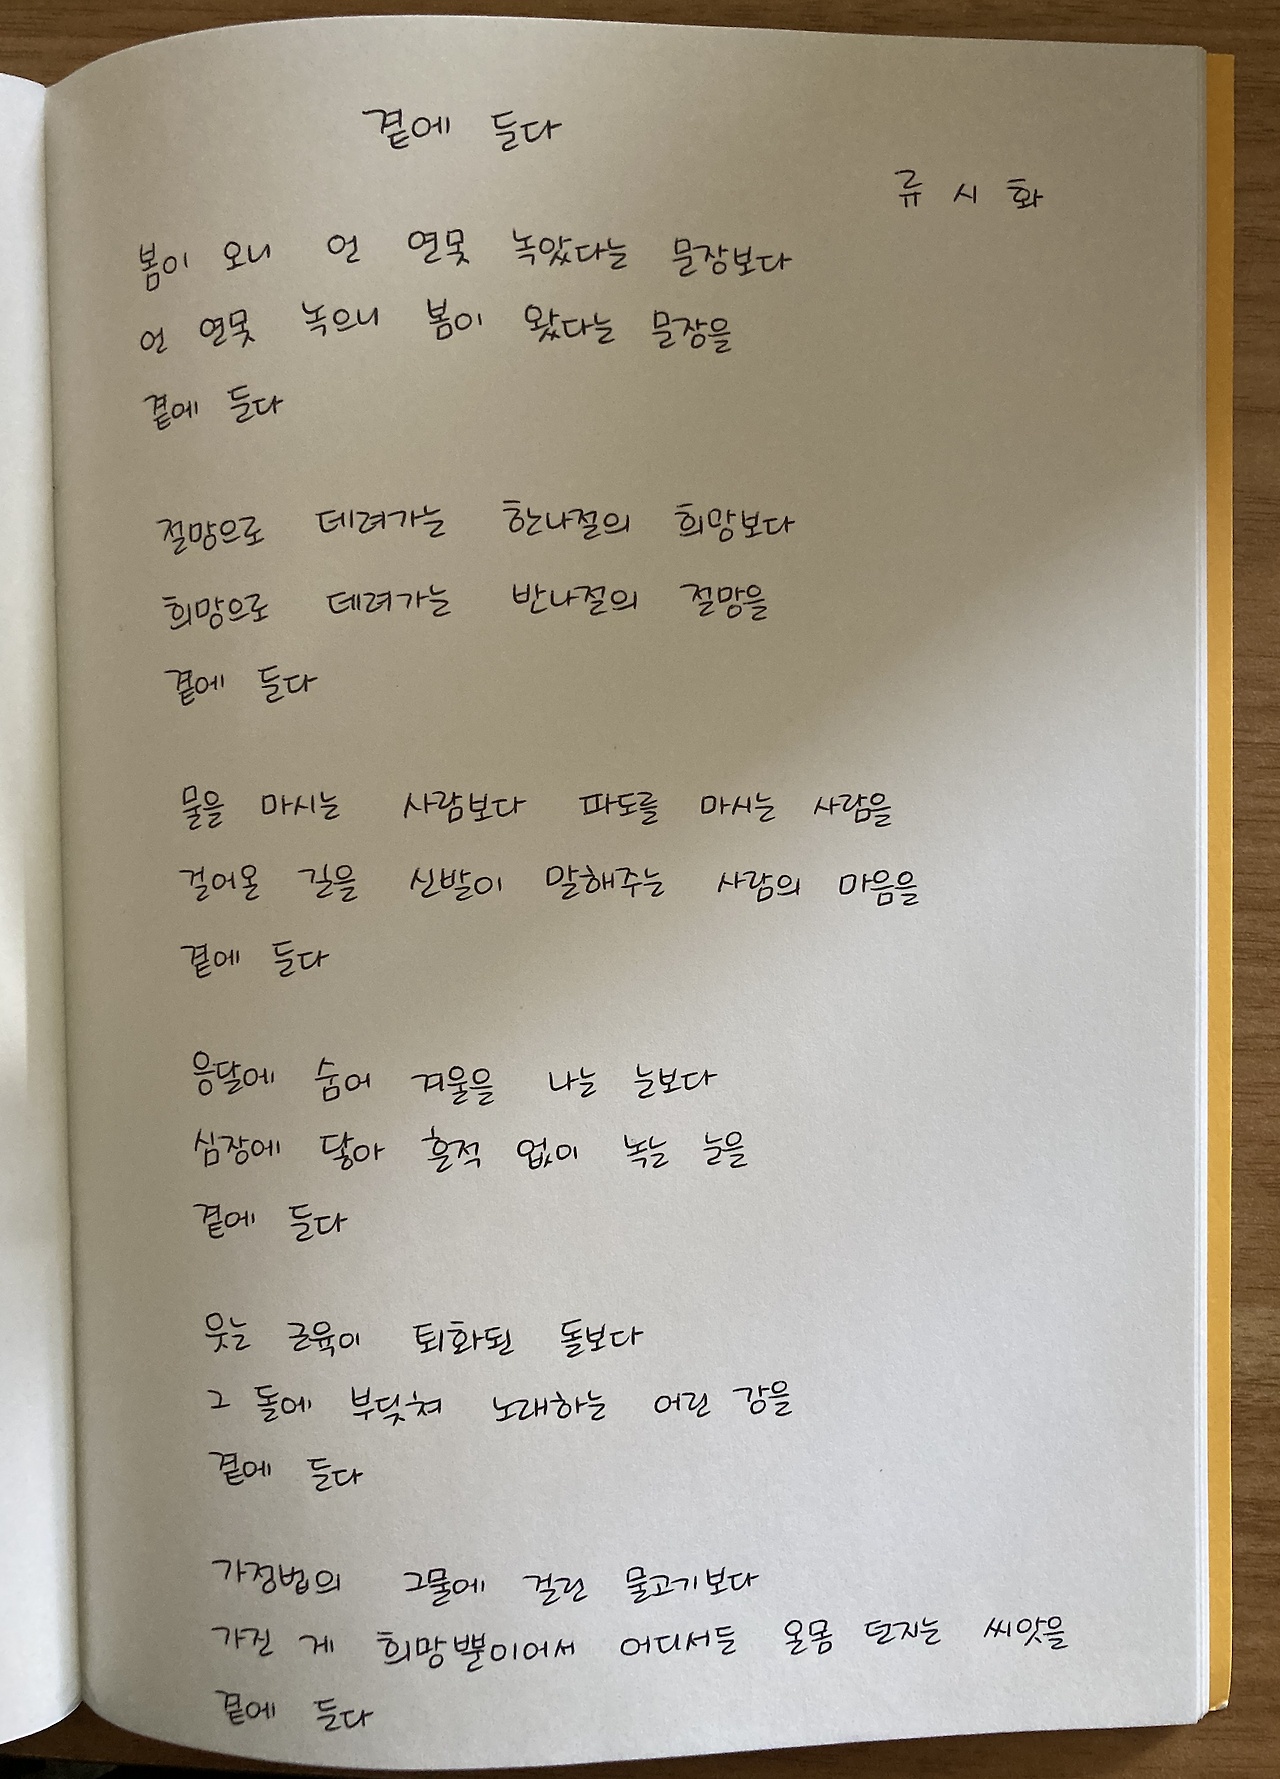 곁에 둔다
류시화
봄이 오니 언 연못 녹았다는 문장보다
언 연못 녹으니 봄이 왔다는 문장을
곁에 둔다
절망으로 데려가는 한나절의 희망보다
희망으로 데려가는 반나절의 절망을
곁에 둔다
물을 마시는 사람보다 파도를 마시는 사람을
걸어온 길을 신발이 말해주는 사람의 마음을
곁에 둔다
응달에 숨어 겨울을 나는 눈보다
심장에 닿아 흔적 없이 녹는 눈을
곁에 둔다
웃는 근육이 퇴화된 돌보다
그 돌에 부딪쳐 노래하는 어린 강을
곁에 둔다
가정법의 그물에 걸린 물고기보다
가진 게 희망뿐이어서 어디서든 온몸 던지는 씨앗을
곁에 둔다